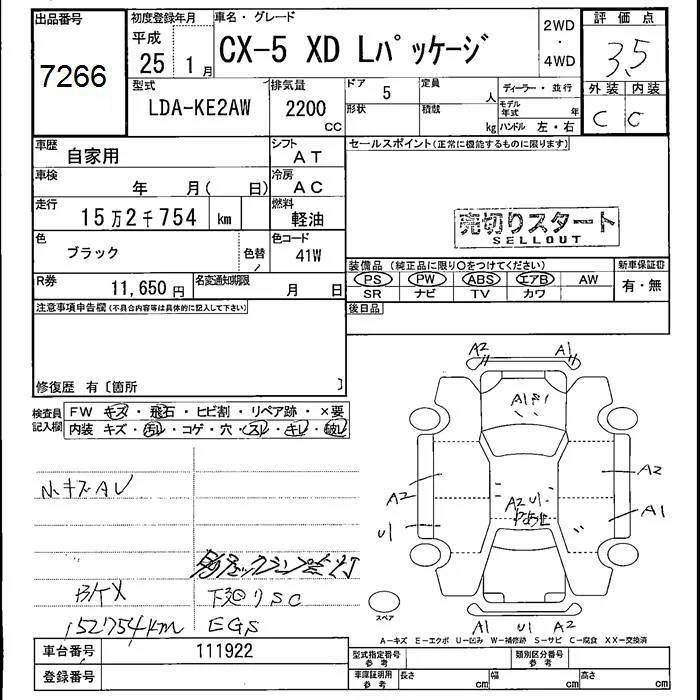 出品番号
7266
初度登録年月
平成
25 1月
車名・グレード
CX-5 XD Lパッケージ
2WD
・
4WD
評価点
3.5
外装 内装
C C
型式
LDA-KE2AW
排気量
2200
CC
ドア 5
形状
定員 人
積載 kg
ディーラー・並行
モデル年式 年
ハンドル 左・右
車歴 自家用
シフト AT
車検 年 月( 日)
冷房 AC
走行 15万2千754 km
燃料 軽油
色 ブラック
色替
色コード 41W
R券 11,650円
名変通知期限 月 日
注意事項申告欄(不具合内容等は具体的に記入して下さい)
修復歴 有〔箇所 〕
セールスポイント(正常に機能するものに限ります)
売切りスタート
SELLOUT
装備品(純正品に限り○をつけてください)
PS PW ABS エアB AW
SR ナビ TV カワ
新車保証書
有・無
後日品
検査員記入欄
FW キズ・飛石・ヒビ割・リペア跡・×要
内装 キズ・汚レ・コゲ・穴・スレ・キレ・破レ
小キズAU
下廻りSC
152754km EGS
A2 A1
A2
A2 U1
A2 A1
U1
スペア
A1 U1 A2
A-キズ E-エクボ U-凹み W-補修跡 S-サビ C-腐食 XX-交換済
車台番号 111922
登録番号
型式指定番号 参考
類別区分番号 参考
車庫証明用 参考
長さ cm 幅 cm 高さ cm